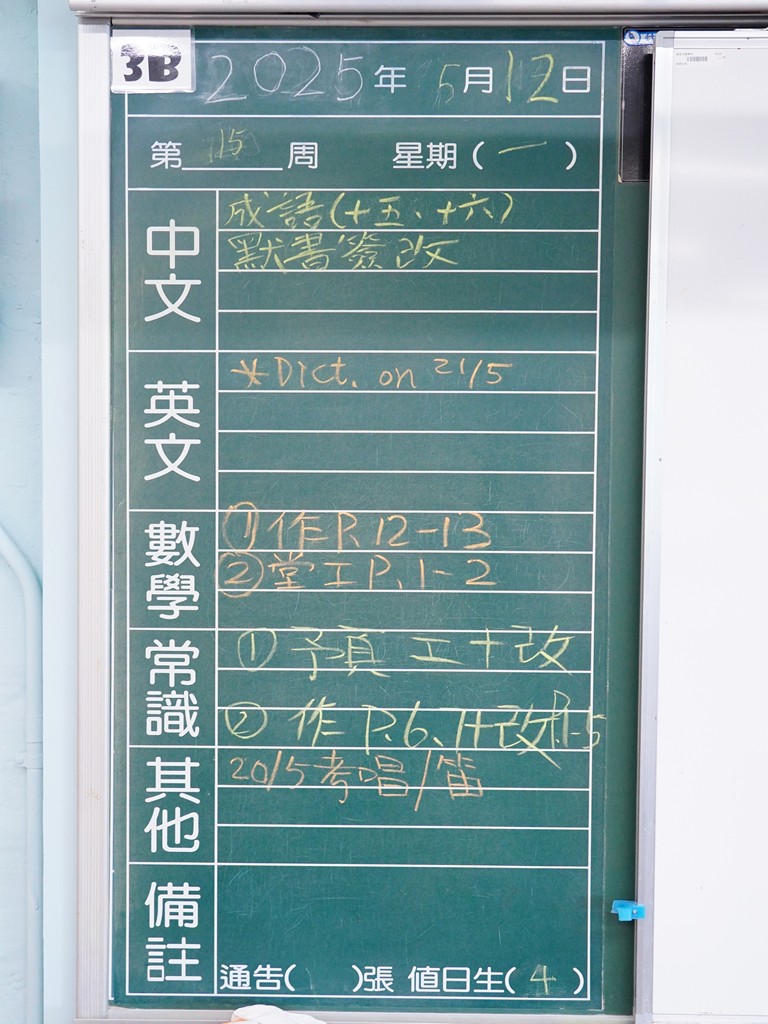 3B
2025年 5月12日
第15周 星期(一)
中文
成語(十五、十六)
默書簽改
英文
*Dict. on 21/5
數學
①作P.12-13
②堂工P.1-2
常識
① 予頁工十改
② 作 P.6、7十改P.1-5
其他
20/5考唱/笛
備註
通告( )張 值日生(4)